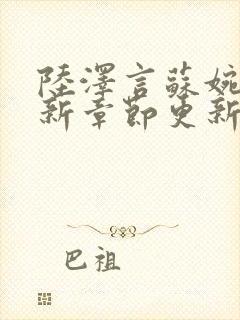 陸澤言蘇婉
新章節更新
巴祖